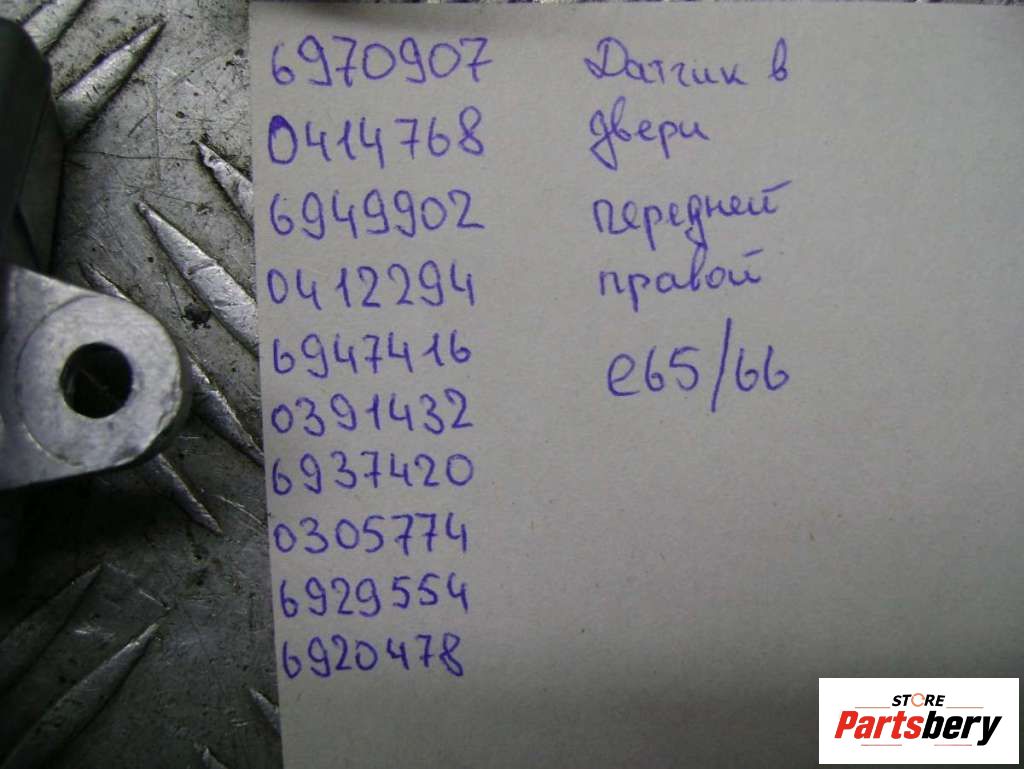 6970907 Датчик в
0414768 двери
6949902 передней
0412294 правой
6947416
e65/66
0391432
6937420
0305774
6929554
6920478
STORE
Partsbery